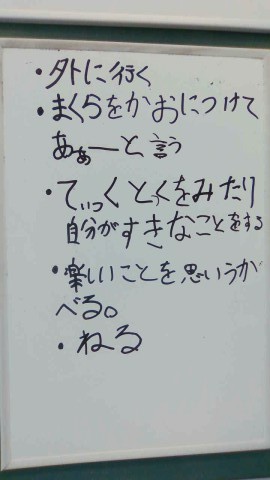 ・外に行く
・まくらをかおにつけて
あぁーと言う
・てぃっくとっくをみたり
自分がすきなことをする
・楽しいことを思いうか
べる。
・ねる